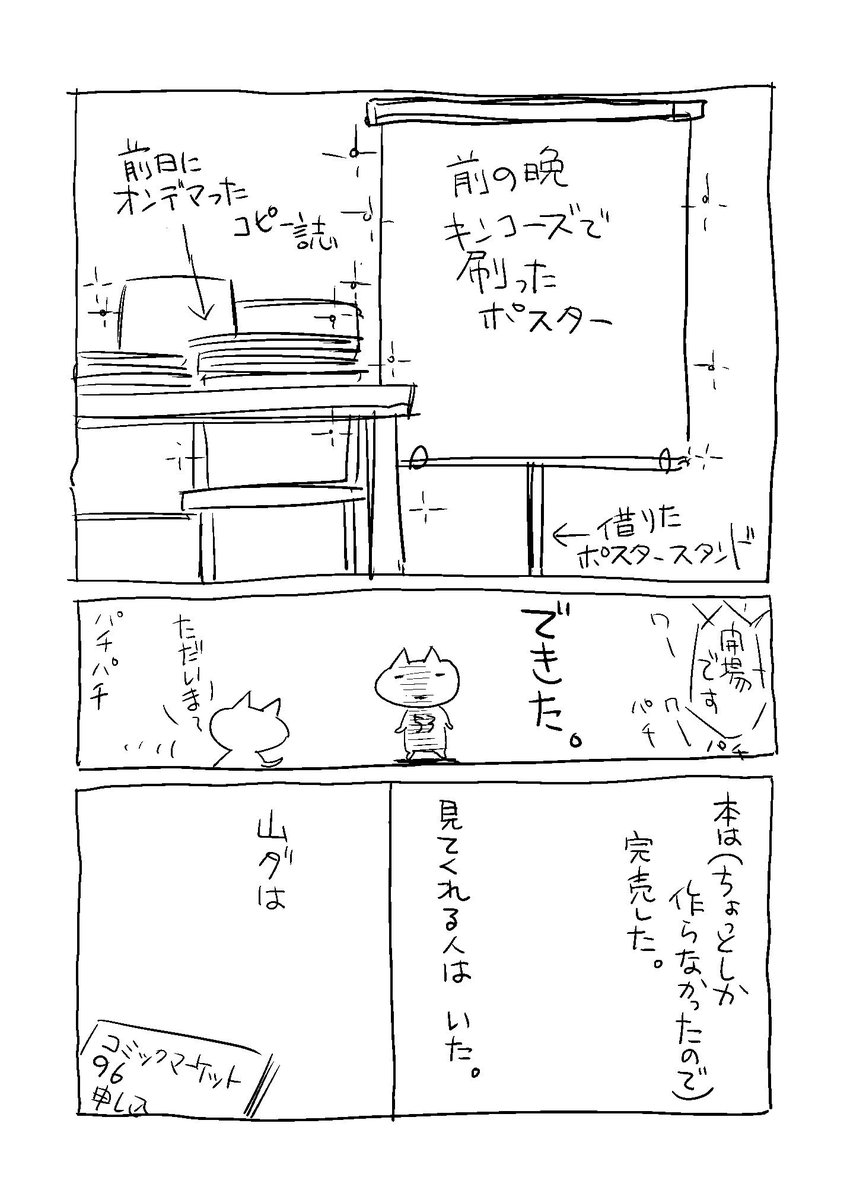 前の晩
キンコーズで
刷った
ポスター
前日に
オンデマった
コピー誌
借りた
ポスタースタンド
開場
です
ワー
ワー
パチ
パチ
できた。
ただいまー
パチパチ
本は(ちょっとしか
作らなかったので)
完売した。
見てくれる人は いた。
山ダは
コミックマーケット
96
申込